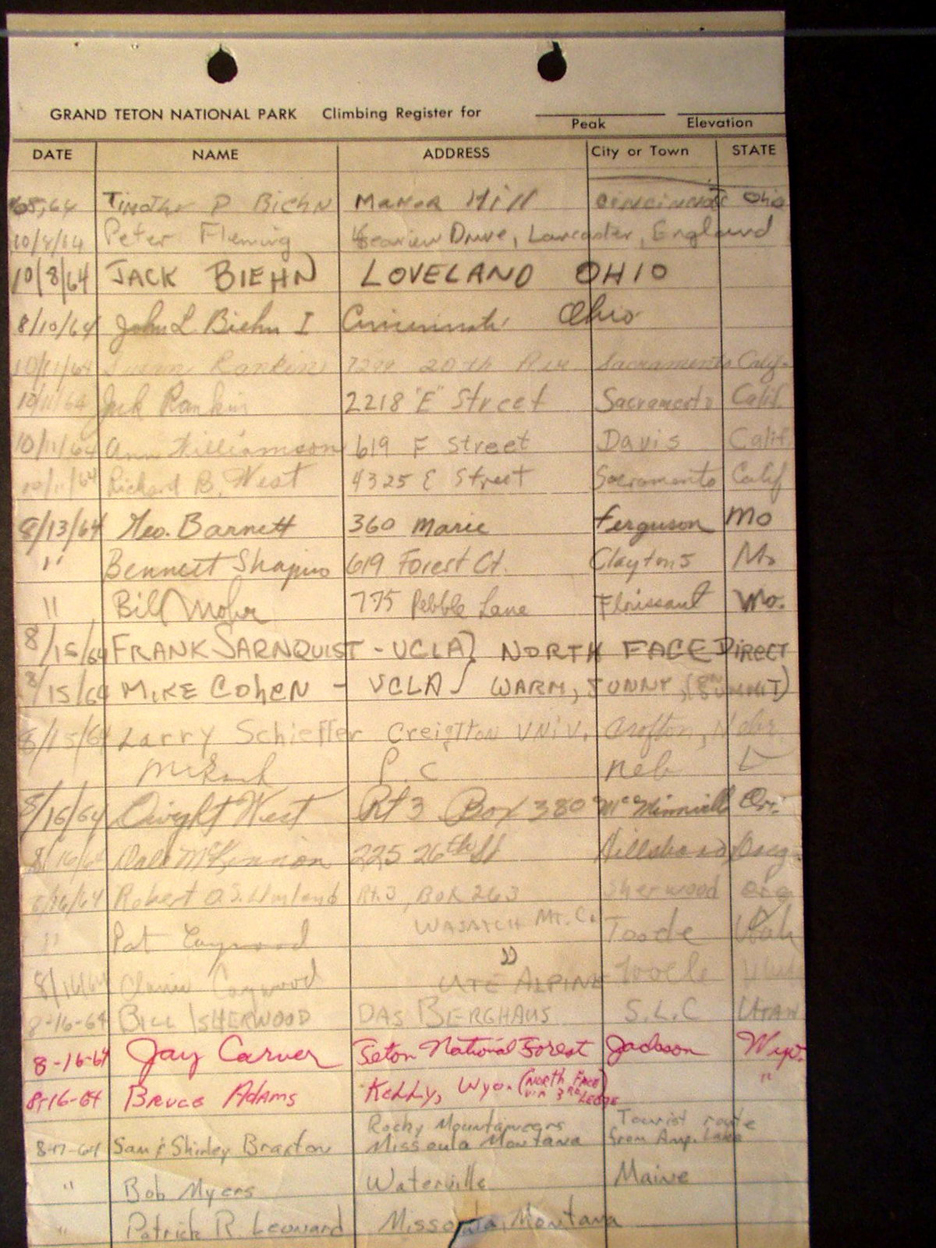 GRAND TETON NATIONAL PARK Climbing Register for
Peak Elevation
DATE NAME ADDRESS City or Town STATE
Timothy P Biehn Manor Hill Cincinnati Ohio
10/8/64 Peter Fleming Drive, Lancaster, England
10/8/64 JACK BIEHN LOVELAND OHIO
8/10/64 John L Biehn I Cincinnati Ohio
10/11/64 Rankin 20th Sacramento Calif.
10/11/64 Jack Rankin 2218 "E" Street Sacramento Calif.
10/11/64 Ann Williamson 619 F Street Davis Calif.
10/11/64 Richard B. West 4325 E Street Sacramento Calif
8/13/64 Geo. Barnett 360 Marie Ferguson Mo
" Bennett Shapiro 619 Forest Ct. Mo
" Bill Mohr 775 Pebble Lane Florissant Mo.
8/15/64 FRANK SARNQUIST - UCLA } NORTH FACE DIRECT
8/15/64 MIKE COHEN - UCLA } WARM, SUNNY, (ON SUMMIT)
8/15/64 Larry Schieffer Creighton UNIV. Crofton, Nebr
P.C Neb
8/16/64 Dwight West Rt 3 Box 380 McMinnville Ore.
8/16/64 Dale McKinnon 225 26th St Hillsboro, Oreg.
8/16/64 Robert Rt. 3, Box 263 Sherwood Oreg
" Pat Caywood WASATCH Mt. C. Tooele Utah
8/16/64 Caywood " Tooele Utah
UTE ALPINE
8-16-64 BILL ISHERWOOD DAS BERGHAUS S.L.C UTAH
8-16-64 Jay Carver Teton National Forest Jackson Wyo.
8-16-64 Bruce Adams Kelly, Wyo. (NORTH FACE VIA 3RD LEDGE "
8-17-64 Sam & Shirley Braxton Rocky Mountaineers Missoula Montana Tourist route from Amp. Lake
" Bob Myers Waterville Maine
" Patrick R. Leonard Missoula, Montana